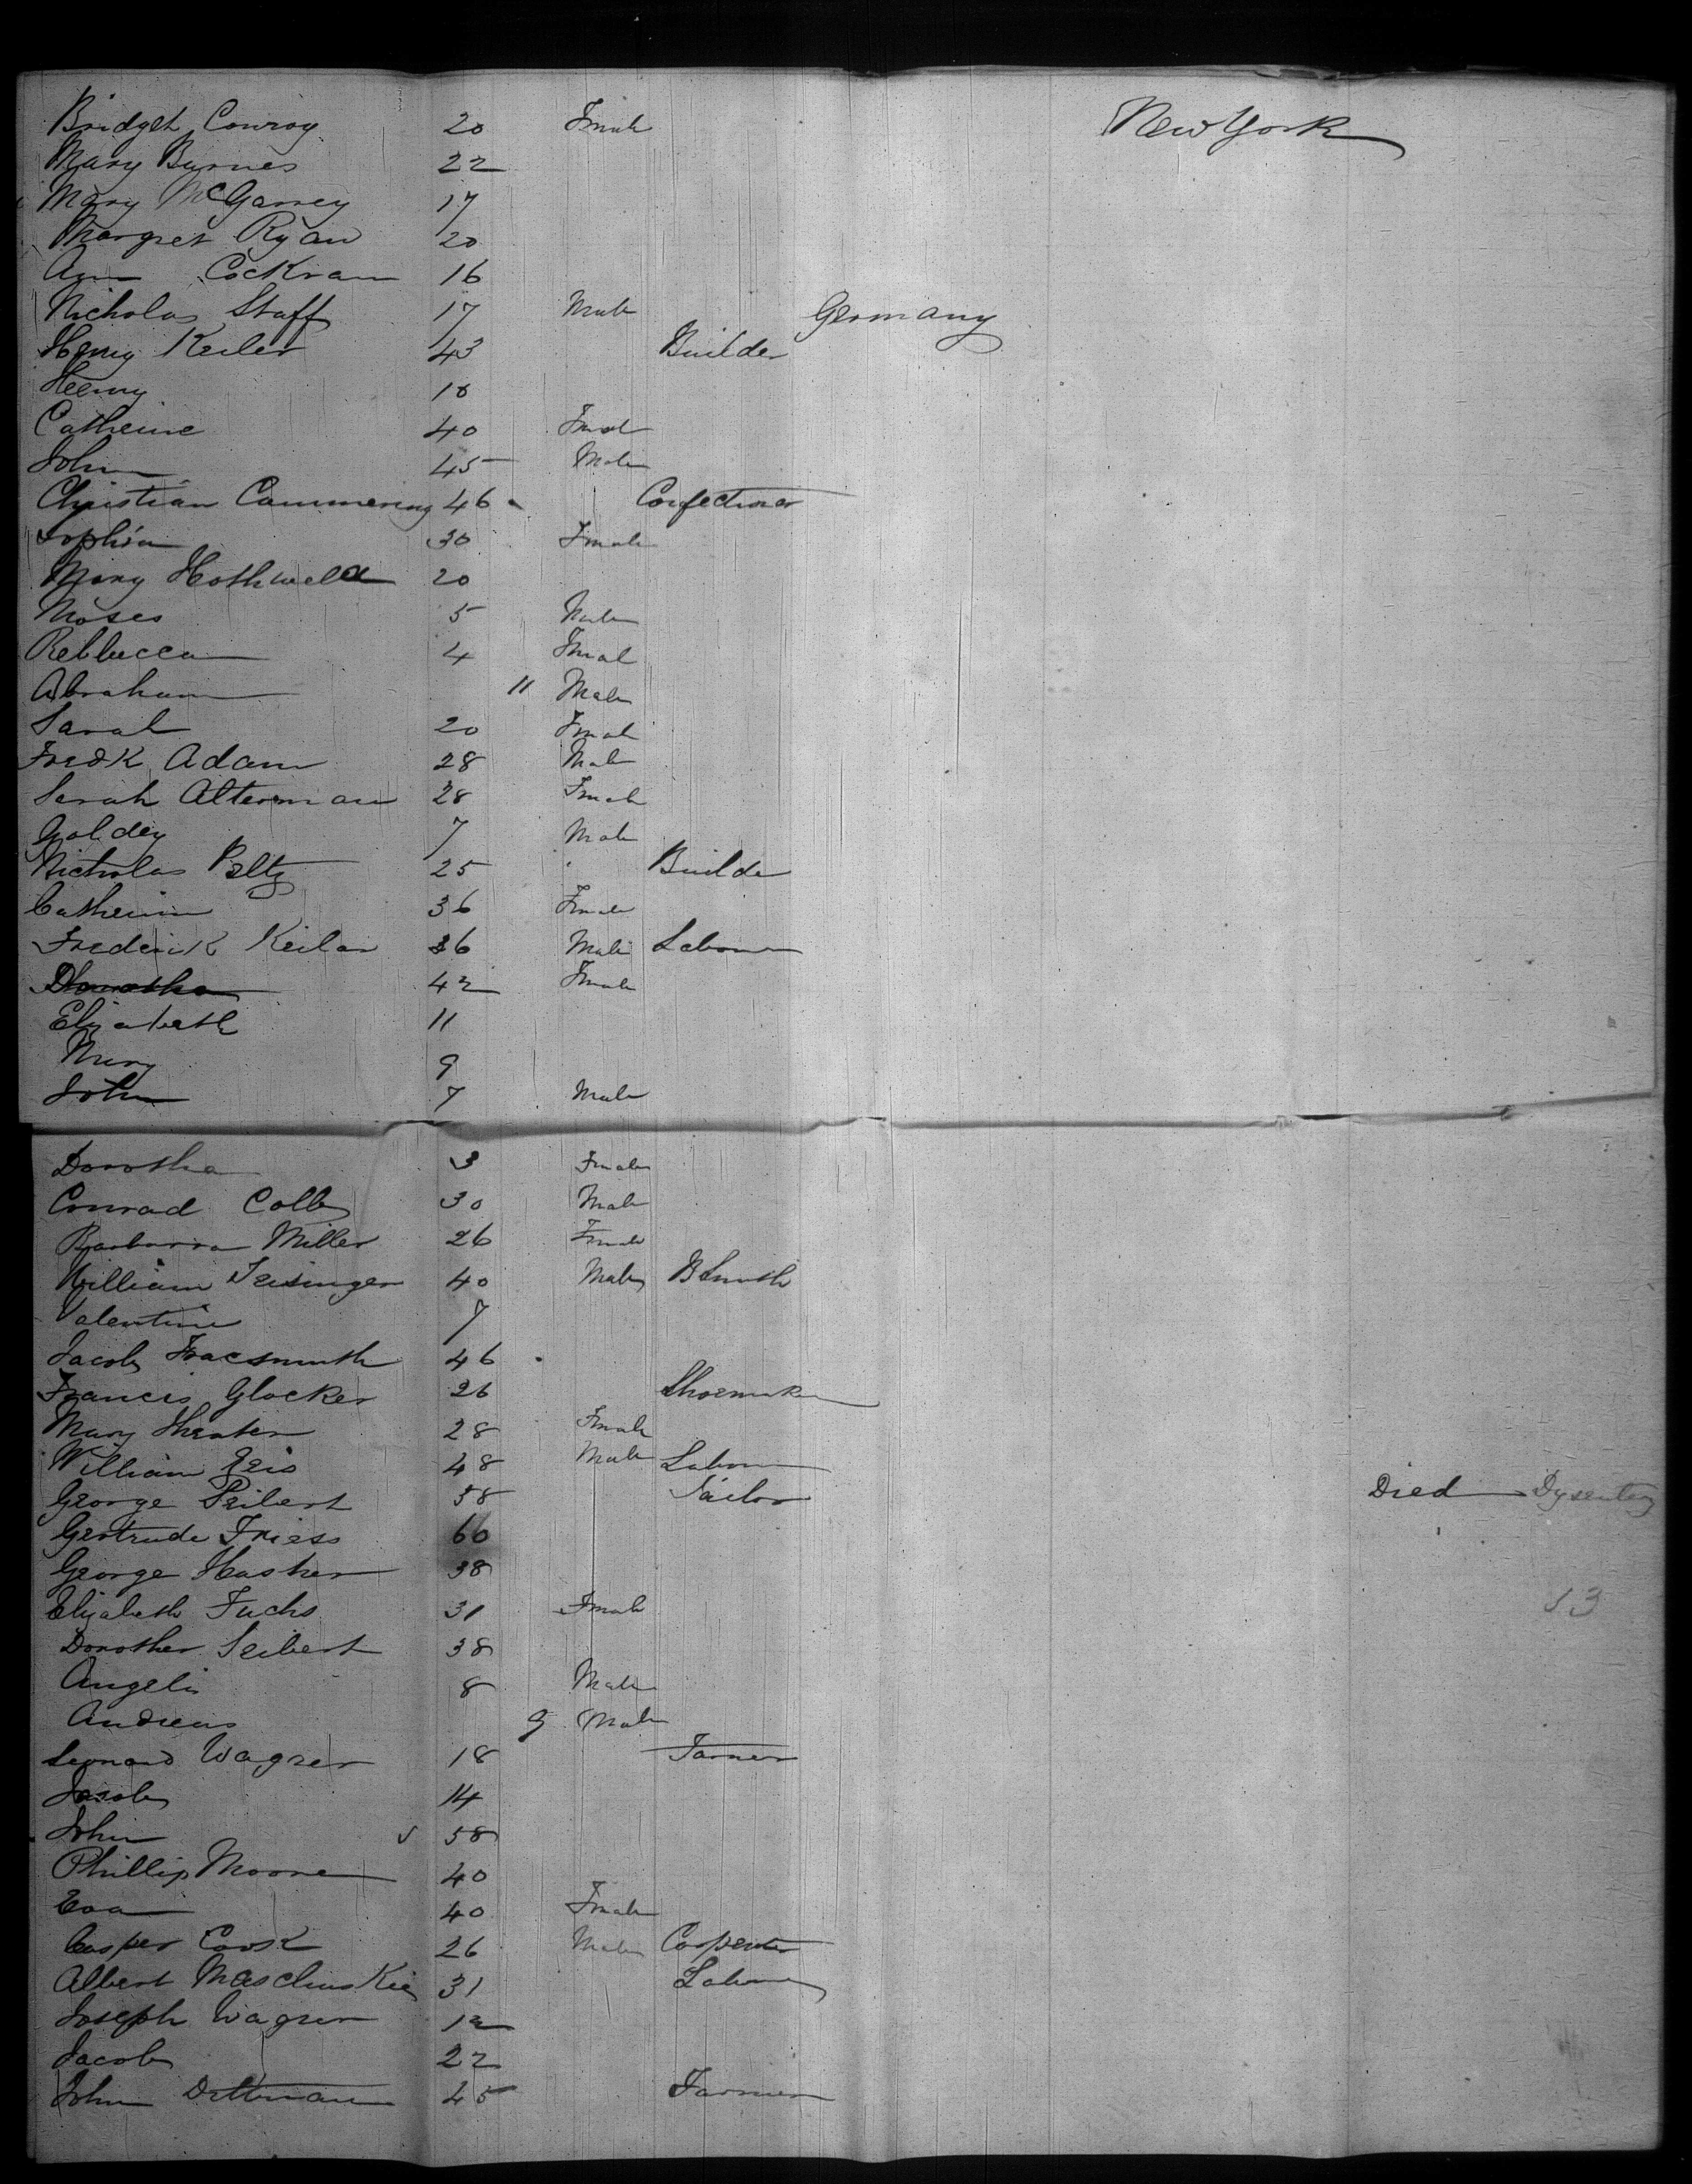 Bridget Conroy 20 Fmale New York
Mary Burnes 22
Mary McGarvey 17
Margret Ryan 20
Ann Cockran 16
Nicholas Staff 17 Male Germany
Henry Keiler 43 Builder
Henry 18
Catherine 40 Fmal
John 45 Male
Christian Cammering 46 Confectioner
Sophia 30 Fmale
Mary 20
Moses 5 Male
Rebbecca 4 Fmal
Abraham 11 Male
Sarah 20 Fmale
Fredk Adam 28 Male
Sarah Alterman 28 Fmale
Goldey 7 Male
Nicholas Peltz 25 Builder
Catherine 36 Fmale
Frederick Keilar 36 Male Labour
Dorotha 42 Fmale
Elizabeth 11
Mary 9
John 7 Male
Dorotha 3 Fmale
Conrad 30 Male
Barbarra Miller 26 Fmale
William 40 Male BSmith
Valentine 7
Jacob 46
Francis Glocker 26 Shoemaker
Mary 28 Fmale
William 48 Male Labour
George Seibert 58 Tailor Died Dysentery
Gertrude Friess 60
George Hasher 38
Elizabeth Fuchs 31 Fmale 13
Dorother Seibert 38
Angelis 8 Male
Andreas 9 Male
Leonard Wagner 18 Farmer
Jacob 14
John 58
Phillip Moore 40
Eva 40 Fmale
Casper Cook 26 Male Carpenter
Albert 31 Labour
Joseph Wagner 12
Jacob 22
John Dittman 45 Farmer